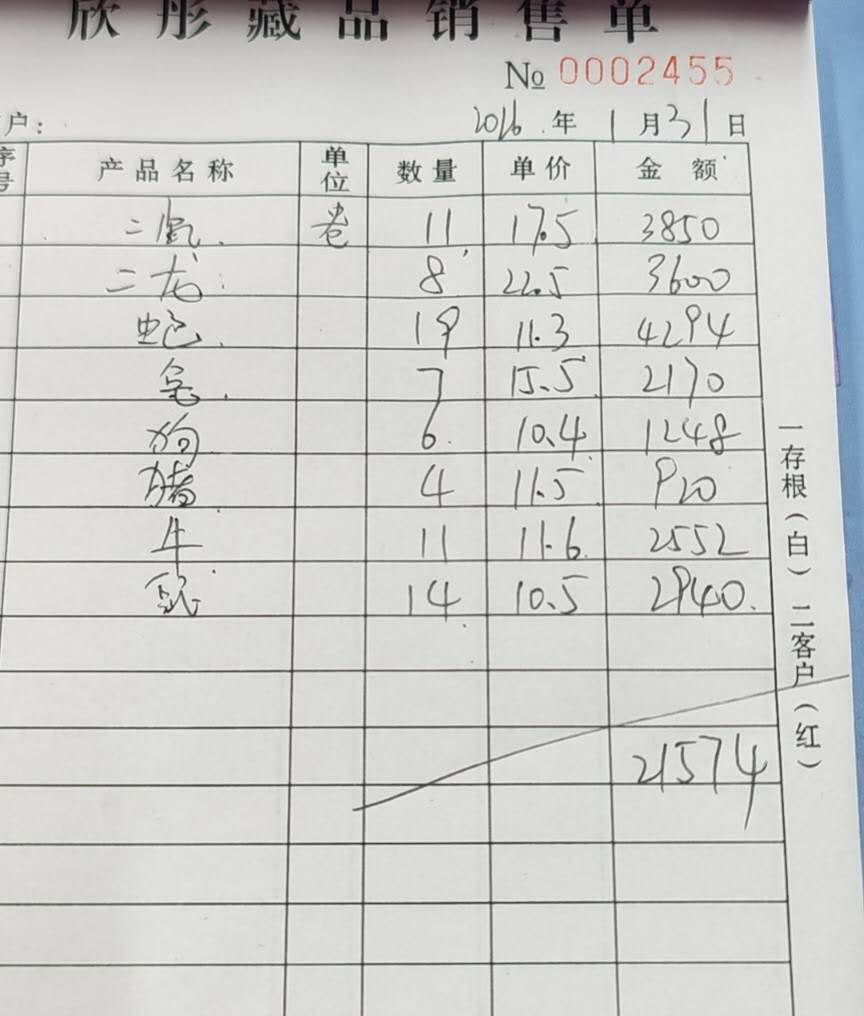 欣彤藏品销售单
No 0002455
户: 2026 年 1 月 31 日
序号 产品名称 单位 数量 单价 金额
二鼠 卷 11 17.5 3850
二龙 8 22.5 3600
蛇 19 11.3 4294
兔 7 15.5 2170
狗 6 10.4 1248
猪 4 11.5 920
牛 11 11.6 2552
14 10.5 2940
21574
一存根(白) 二客户(红)